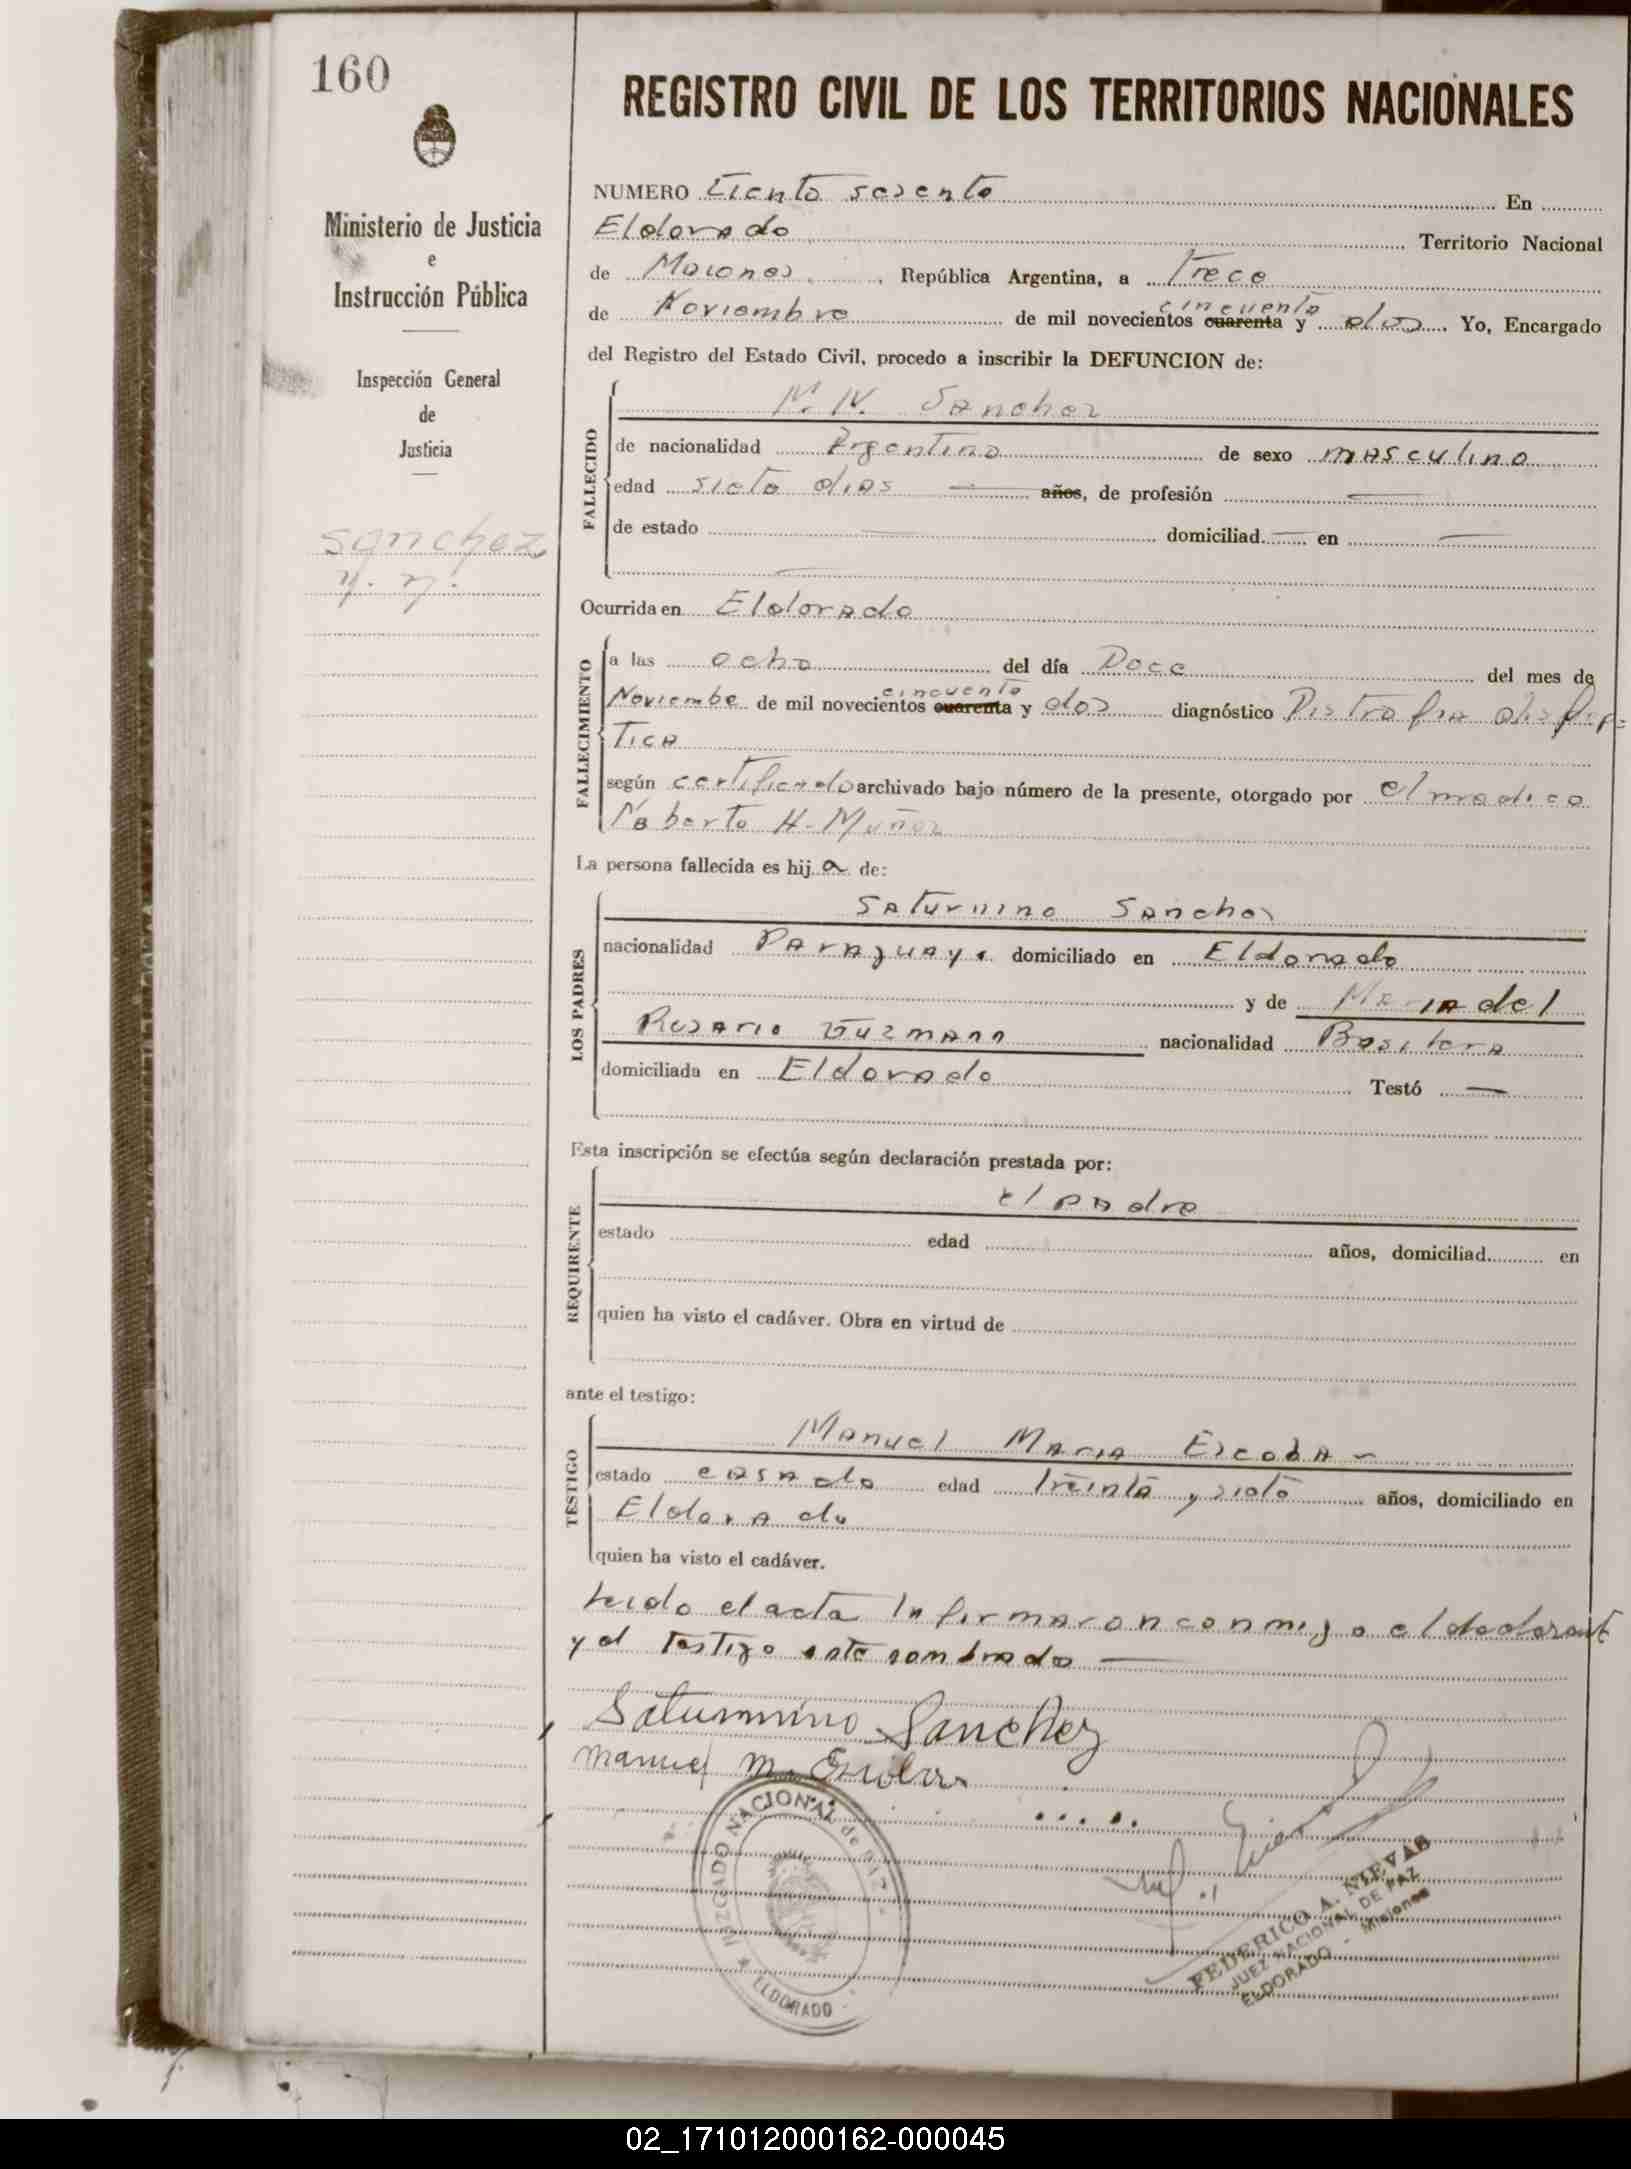 160
Ministerio de Justicia
e
Instrucción Pública
Inspección General
de
Justicia
Sanchez
N. N.
REGISTRO CIVIL DE LOS TERRITORIOS NACIONALES
NUMERO Ciento sesenta En
Eldorado Territorio Nacional
de Misiones, República Argentina, a Trece
de Noviembre de mil novecientos cuarenta cincuenta y dos. Yo, Encargado
del Registro del Estado Civil, procedo a inscribir la DEFUNCION de:
FALLECIDO
N. N. Sanchez
de nacionalidad Argentina de sexo masculino
edad siete dias años, de profesión
de estado domiciliad en
Ocurrida en Eldorado
FALLECIMIENTO
a las ocho del día Doce del mes de
Noviembe de mil novecientos cuarenta cincuenta y dos diagnóstico Distrofia
tica
según certificado archivado bajo número de la presente, otorgado por el medico
Roberto H. Muñoz
La persona fallecida es hija de:
LOS PADRES
Saturnino Sanchez
nacionalidad Paraguay. domiciliado en Eldorado
y de Maria del
Rosario Guzmann nacionalidad
domiciliada en Eldorado Testó
Esta inscripción se efectúa según declaración prestada por:
REQUIRENTE
el padre
estado edad años, domiciliad en
quien ha visto el cadáver. Obra en virtud de
ante el testigo:
TESTIGO
Manuel Maria Escobar
estado casado edad treinta y siete años, domiciliado en
Eldorado
quien ha visto el cadáver.
Leido el acta la firmaron conmigo el declarant
y el testigo ante nombrado
Saturnino Sanchez
Manuel M. Escobar
JUZGADO NACIONAL de PAZ
ELDORADO
FEDERICO A. NIEVAS
JUEZ NACIONAL DE PAZ
ELDORADO - Misiones
02_171012000162-000045